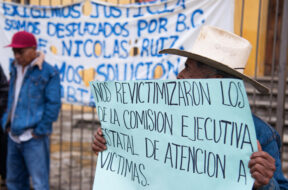 EXIGIMOS JUSTICIA
SOMOS DESPLAZADOS POR B.C.
NICOLAS RUIZ
SOLUCIÓN
NOS REVICTIMIZARON LOS
DE LA COMISION EJECUTIVA
ESTATAL DE ATENCION A
VICTIMAS.